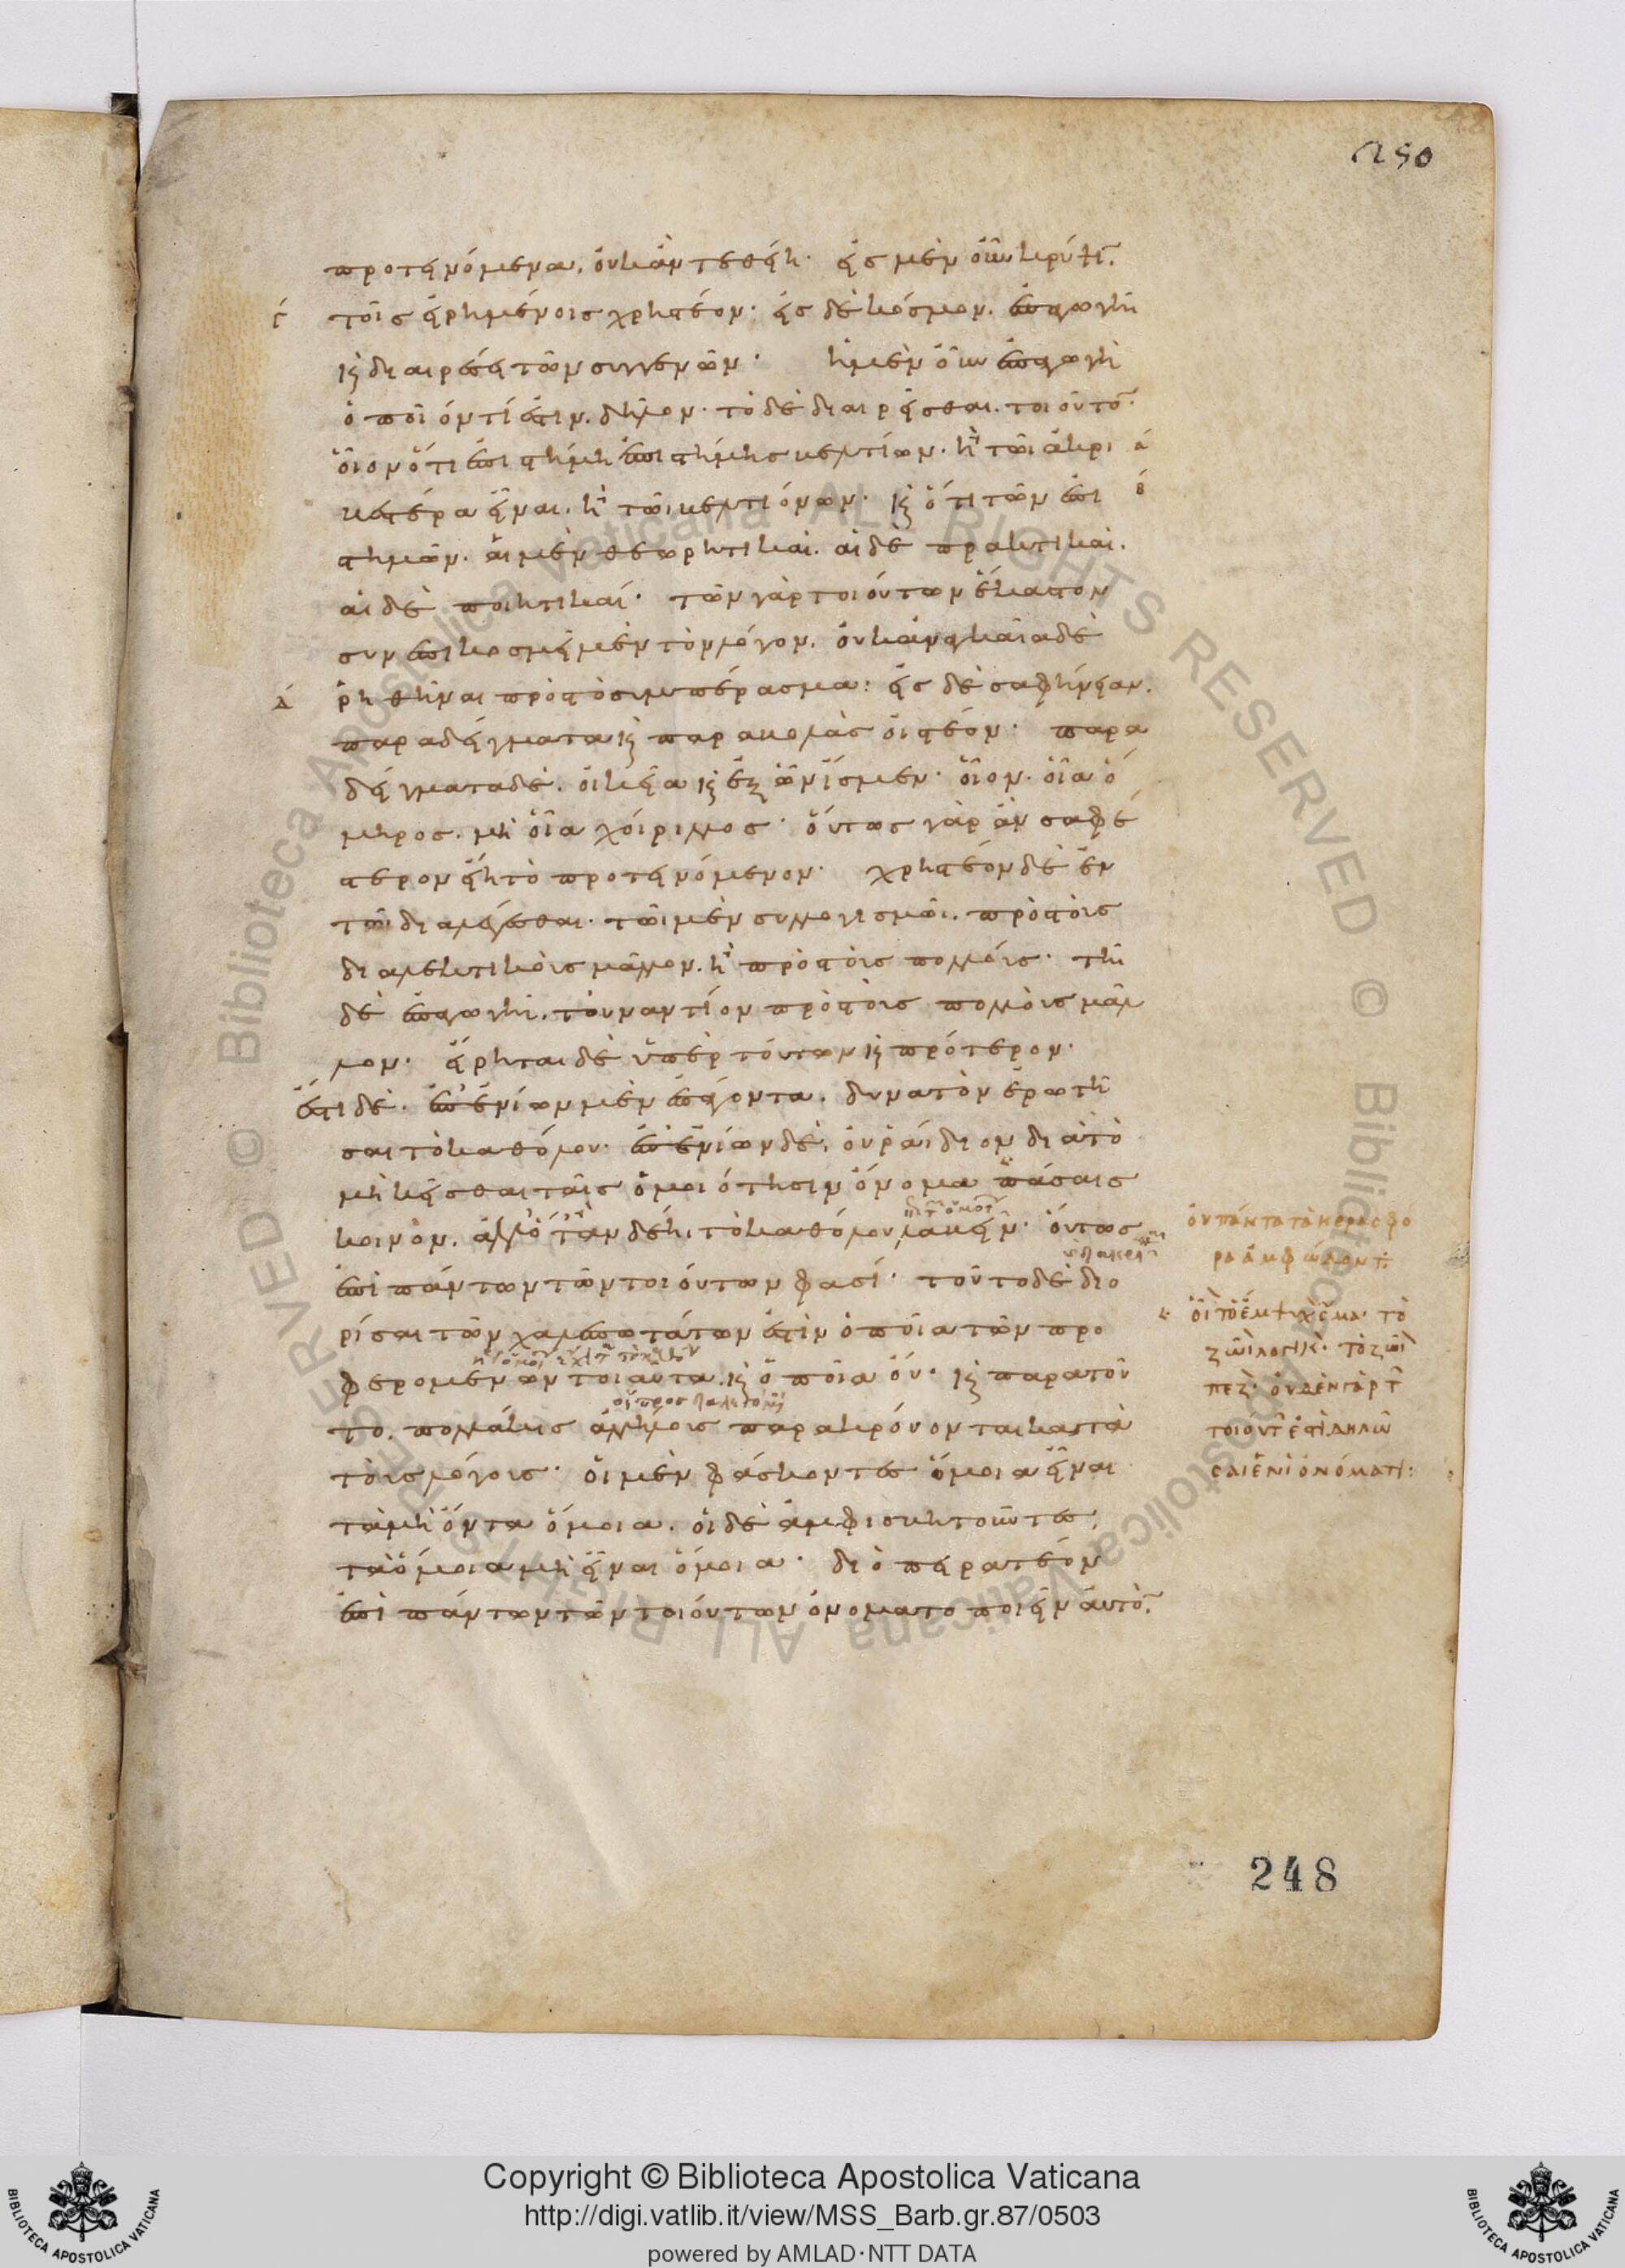 250
προτεινόμενα, οὐκ ἂν τεθείη· εἰς μὲν οὖν κρύψιν
τοῖς εἰρημένοις χρηστέον· εἰς δὲ κόσμον, ἐπαγωγῆ
καὶ διαιρέσει τῶν συγγενῶν· ἡ μὲν οὖν ἐπαγωγὴ
ὁποῖόν τί ἐστιν, δῆλον· τὸ δὲ διαιρεῖσθαι, τοιοῦτον·
οἷον ὅτι ἐπιστήμη ἐπιστήμης βελτίων· ἢ τῶι ἀκρι
βεστέρα εἶναι, ἢ τῶι βελτιόνων· καὶ ὅτι τῶν ἐπι
στημῶν, αἱ μὲν θεωρητικαὶ, αἱ δὲ πρακτικαί,
αἱ δὲ ποιητικαί· τῶν γὰρ τοιούτων ἕκαστον
συνεπικοσμεῖ μὲν τὸν λόγον, οὐκ ἀναγκαῖα δὲ
ῥηθῆναι πρὸς τὸ συμπέρασμα: εἰς δὲ σαφήνειαν,
παραδείγματα καὶ παραβολὰς οἰστέον· παρα
δείγματα δὲ, οἰκεῖα καὶ ἐξ ὧν ἴσμεν· οἷον, οἷα ὅ
μηρος, μὴ οἷα χοίριλλος· οὕτως γὰρ ἂν σαφέ
στερον εἴη τὸ προτεινόμενον· χρηστέον δὲ ἐν
τῶι διαλέγεσθαι, τῶι μὲν συλλογισμῶι, πρὸς τοὺς
διαλεκτικοὺς μᾶλλον, ἢ πρὸς τοὺς πολλούς· τῆ
δὲ ἐπαγωγῆι, τοὐναντίον πρὸς τοὺς πολλοὺς μᾶλ
λον· εἴρηται δὲ ὑπὲρ τούτων καὶ πρότερον·
ἔστι δὲ, ἐπ' ἐνίων μὲν ἐπάγοντα, δυνατὸν ἐρωτῆ
σαι τὸ καθόλου· ἐπ' ἐνίων δὲ, οὐ ῥάιδιον διὰ τὸ
μὴ κεῖσθαι ταῖς ὁμοιότησιν ὄνομα πάσαις
κοινόν, ἀλλ' ὅταν δέηι τὸ καθόλου λαβεῖν· οὕτως
ἐπὶ πάντων τῶν τοιούτων φασί· τοῦτο δὲ διο
ρίσαι τῶν χαλεπωτάτων ἐστὶν ὁποῖα τῶν προ
φερομένων τοιαῦτα, καὶ ὁποῖα οὔ· καὶ παρὰ τοῦ
το, πολλάκις ἀλλήλους παρακρούονται κατὰ
τοὺς λόγους· οἱ μὲν φάσκοντες ὅμοια εἶναι
τὰ μὴ ὄντα ὅμοια, οἱ δὲ ἀμφισβητοῦντες,
τὰ ὅμοια μὴ εἶναι ὅμοια· διὸ πειρατέον
ἐπὶ πάντων τῶν τοιούτων ὀνοματοποιεῖν αὐτόν
οὐ πάντα τὰ κερασφό
ρα ἀμφώδοντ
τὸ
τὸ ζῶι
πεζ· οὐδὲν γὰρ
τοιοῦτ ἐστὶ δηλῶ
σαι ἑνὶ ὀνόματι:
248
Copyright © Biblioteca Apostolica Vaticana
http://digi.vatlib.it/view/MSS_Barb.gr.87/0503
powered by AMLAD·NTT DATA